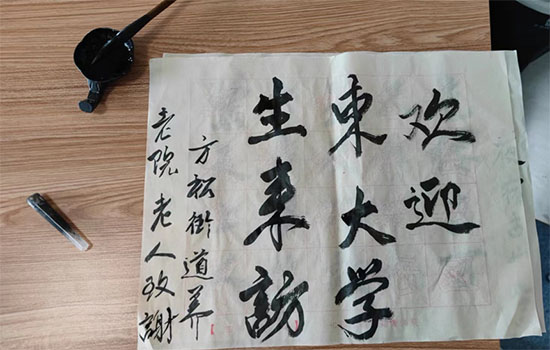 欢迎
東大学
生来訪
方松街道养
老院老人致謝